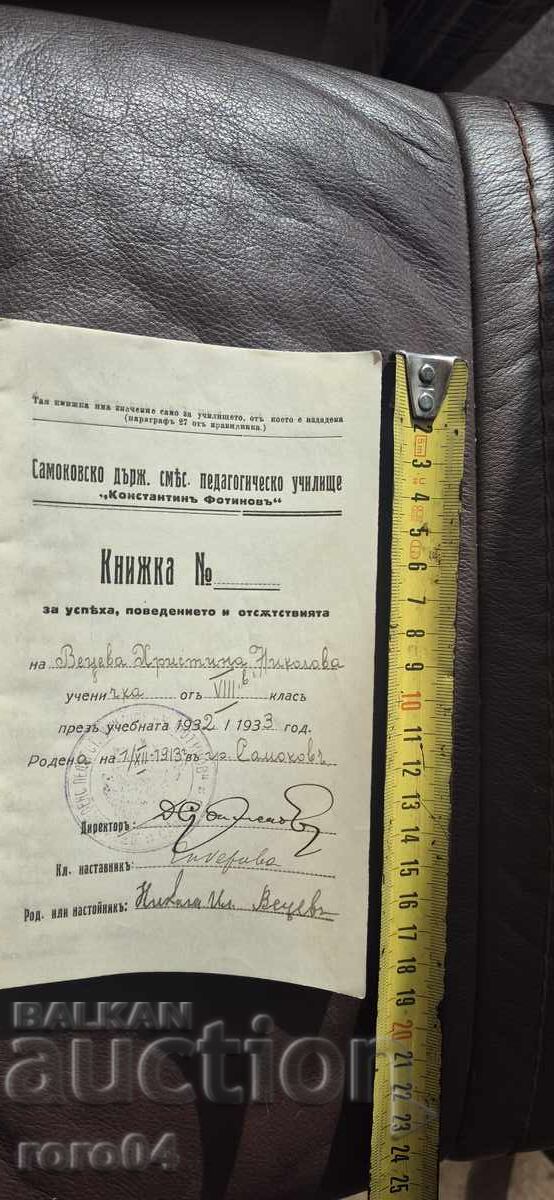 Тая книжка има значение само за училището, отъ което е издадена
(параграфъ 27 отъ правилника.)
Самоковско държ. смѣс. педагогическо училище
„Константинъ Фотиновъ“
Книжка №
за успѣха, поведението и отсѫтствията
на Вецева Христина Николова
ученичка отъ VIII "в" класъ
презъ учебната 1932 / 1933 год.
Родена на 1/XII-1913 въ гр. Самоковъ
Директоръ:
Кл. наставникъ:
Род. или настойникъ: Никола Ил. Вецевъ
2 3 4 5 6 7 8 9 10 11 12 13 14 15 16 17 18 19 20 21 22 23 24 25
5m
BALKAN
auction
roro04